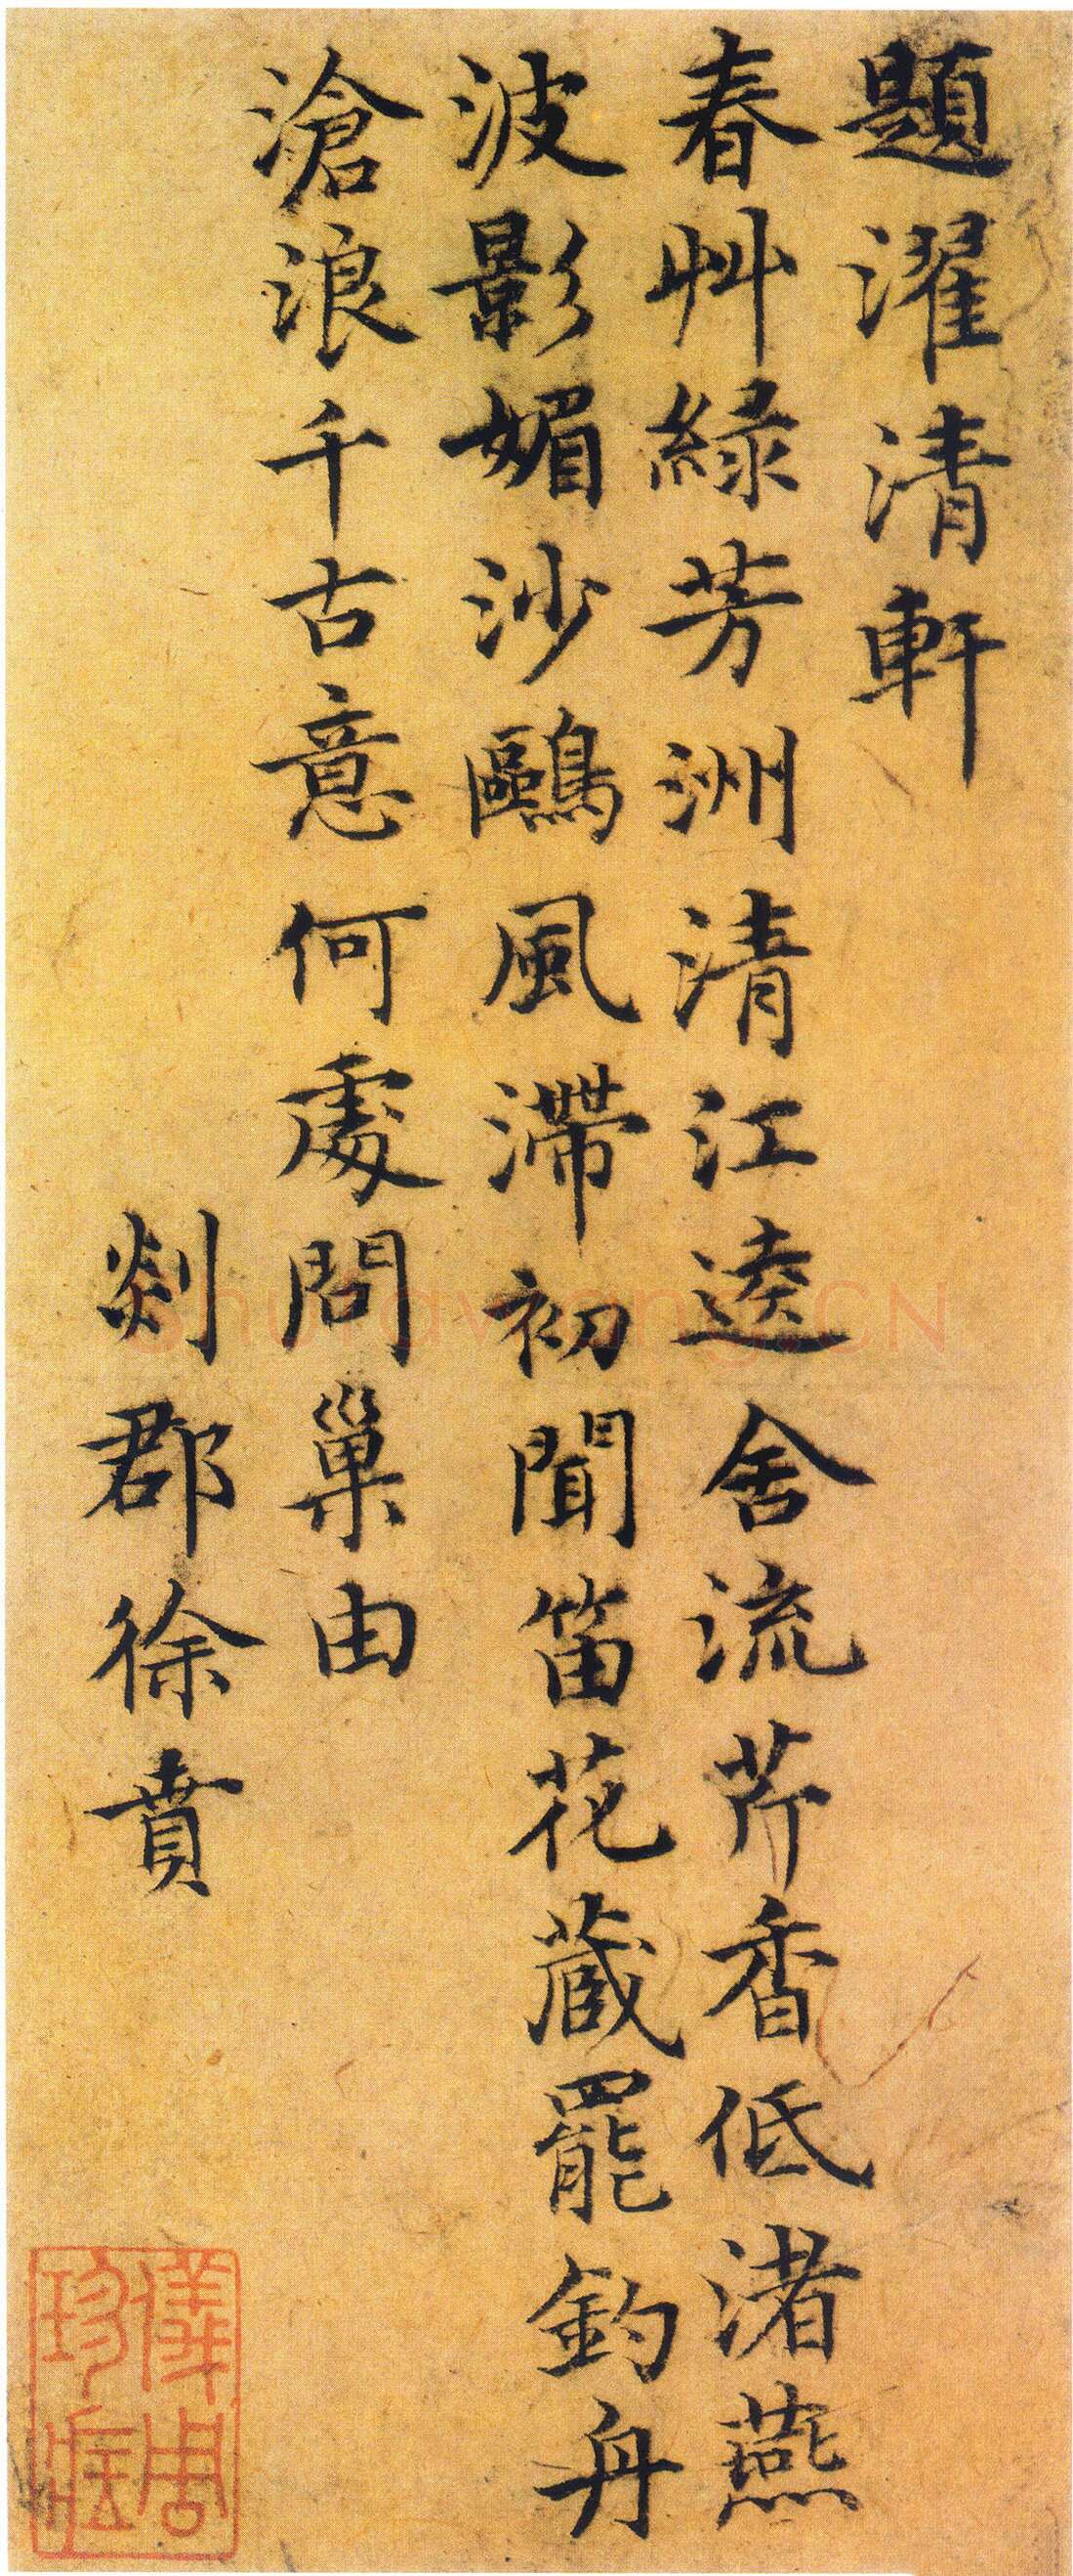 題濯清軒
春艸綠芳洲清江逵舍流芹香低渚燕
波影媚沙鷗風滯初聞笛花藏罷釣舟
滄浪千古意何處問巢由
剡郡徐賁
儀周珍藏
shufawang.CN